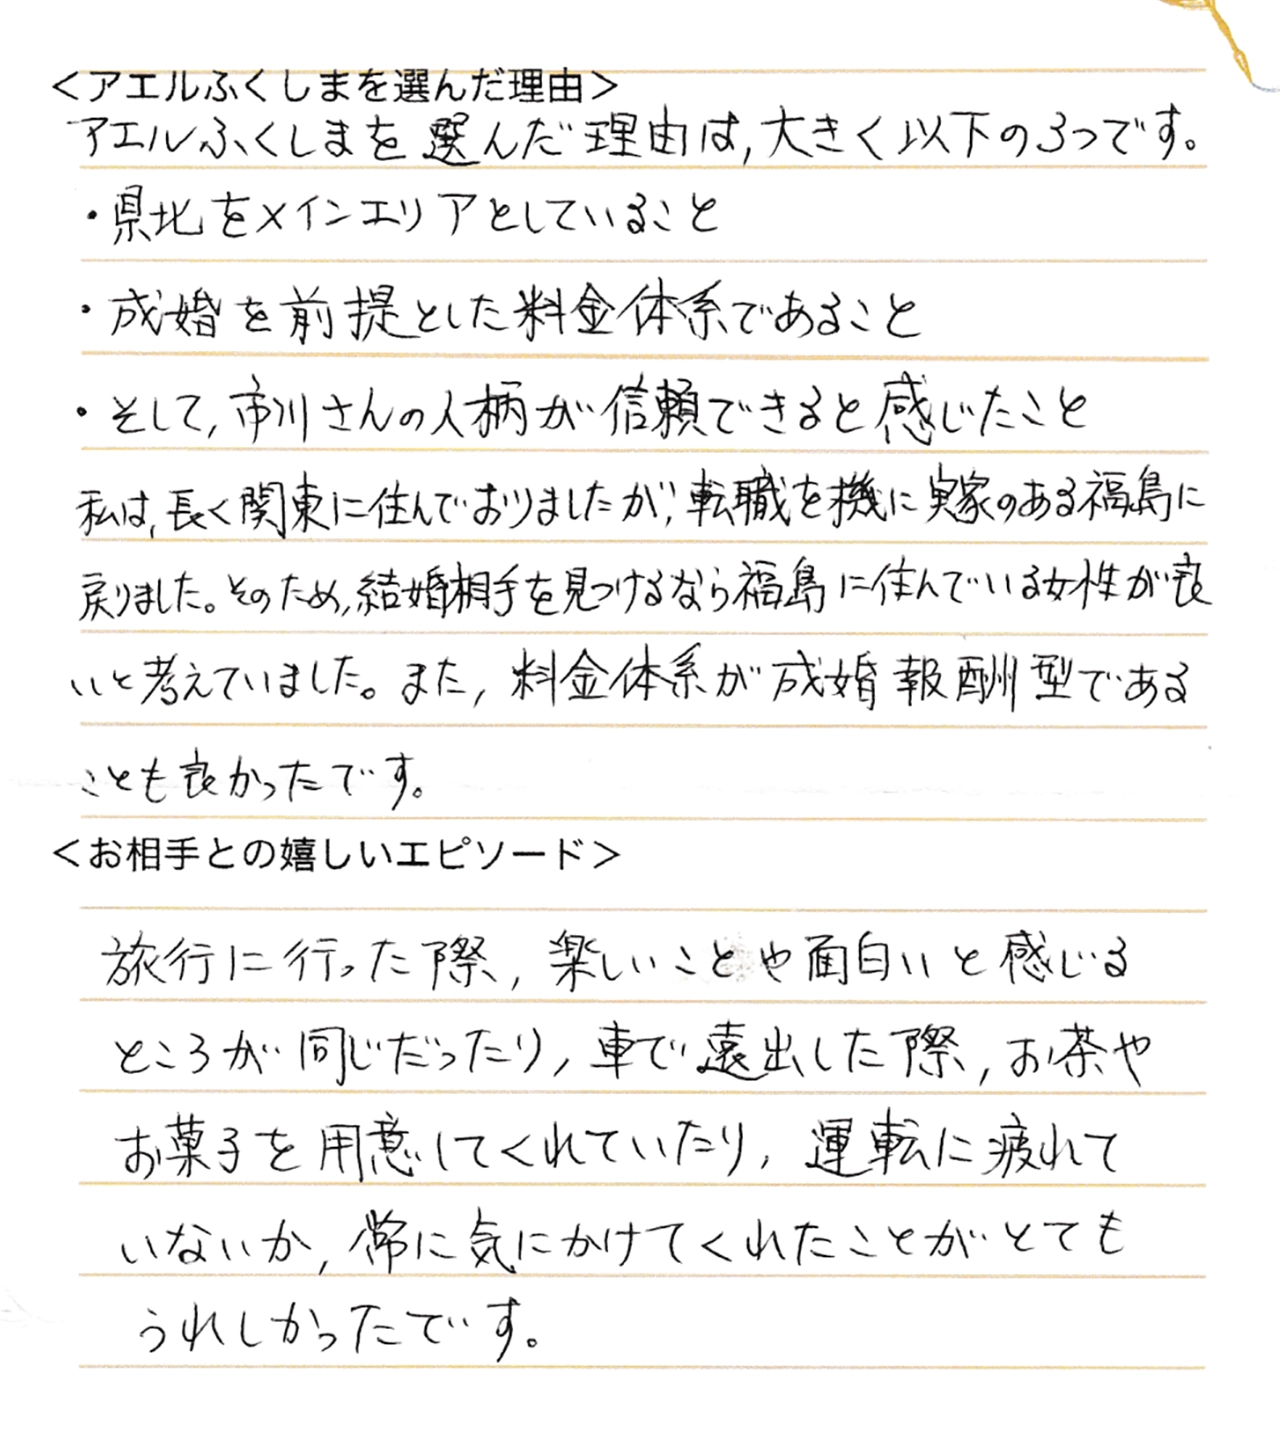 ＜アエルふくしまを選んだ理由＞
アエルふくしまを選んだ理由は,大きく以下の3つです。
・県北をメインエリアとしていること
・成婚を前提とした料金体系であること
・そして,市川さんの人柄が信頼できると感じたこと
私は,長く関東に住んでおりましたが,転職を機に実家のある福島に
戻りました。そのため,結婚相手を見つけるなら福島に住んでいる女性が良
いと考えていました。また,料金体系が成婚報酬型である
ことも良かったです。
＜お相手との嬉しいエピソード＞
旅行に行った際,楽しいことや面白いと感じる
ところが同じだったり,車で遠出した際,お茶や
お菓子を用意してくれていたり,運転に疲れて
いないか,常に気にかけてくれたことがとても
うれしかったです。